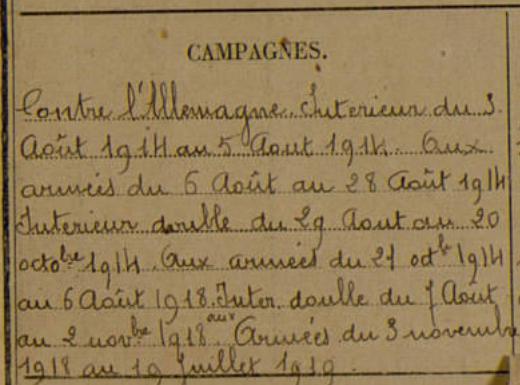 CAMPAGNES.
Contre l'Allemagne. Interieur du 3
Août 1914 au 5 Aout 1914. Aux
armées du 6 Août au 28 Août 1914
Interieur double du 29 Aout au 20
octobre 1914. Aux armées du 21 octb 1914
au 6 Août 1918. Inter. double du 7 Août
au 2 novbre 1918 aux Armées du 3 novembre
1918 au 19 Juillet 1919.